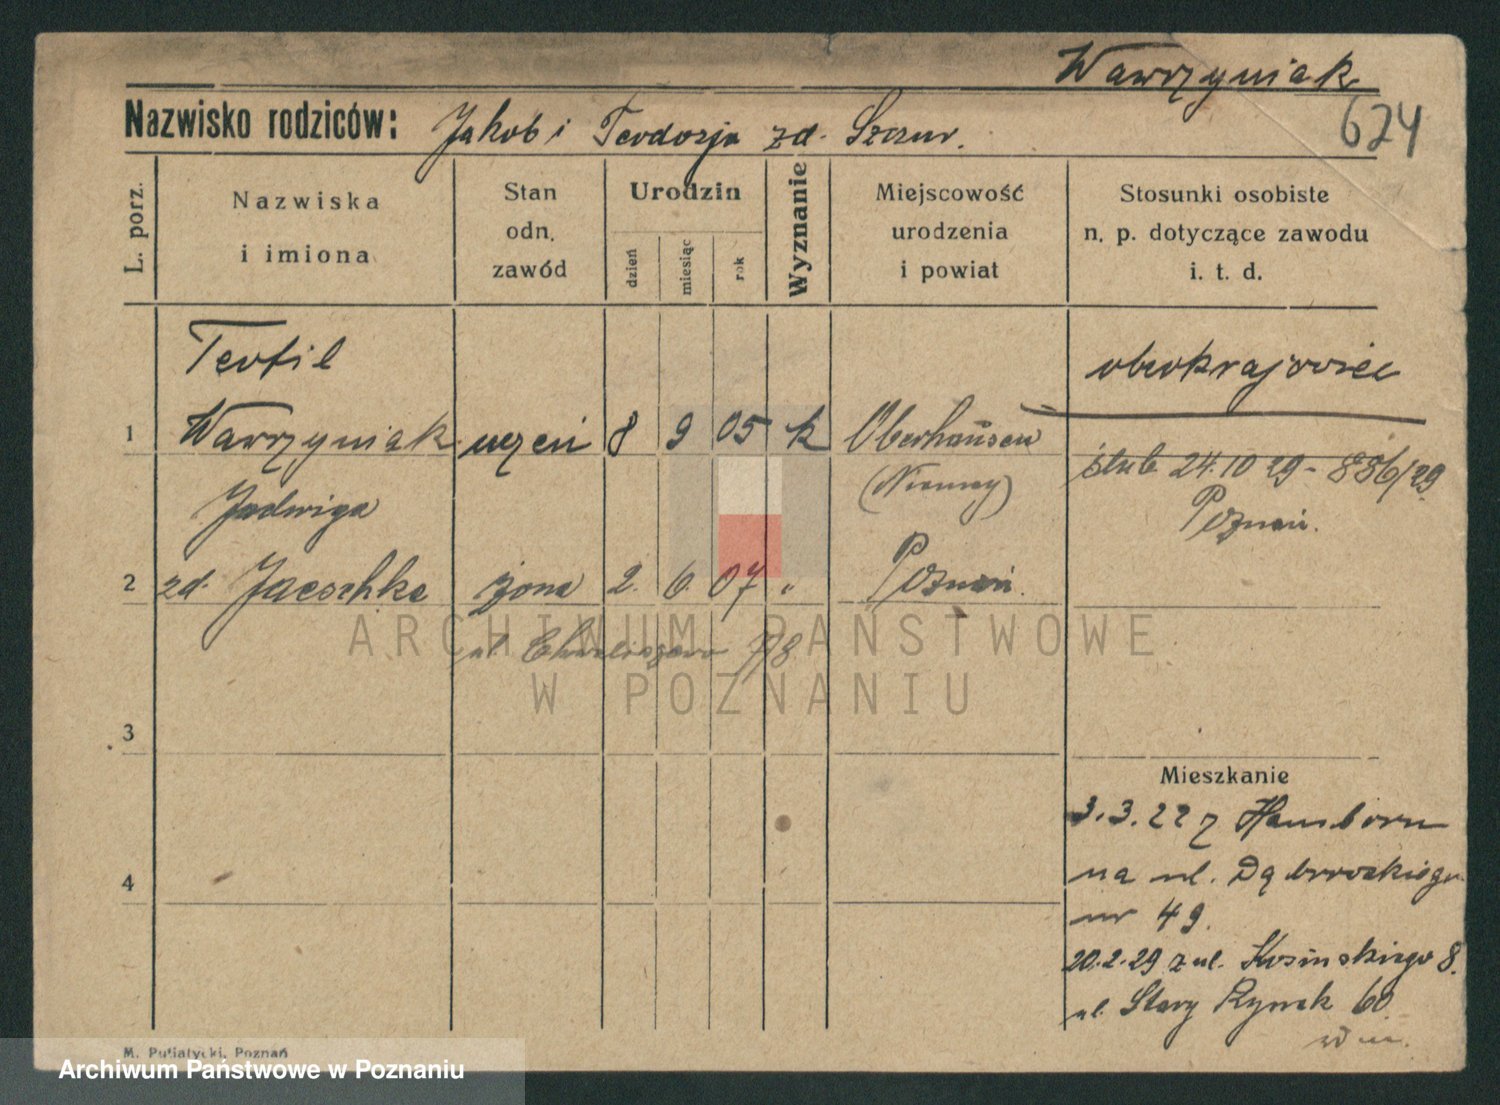 Wawrzyniak
624
Nazwisko rodziców: Jakob i Teodozja zd. Szczur.
L. porz.
Nazwiska
i imiona
Stan
odn.
zawód
Urodzin
dzień
miesiąc
rok
Wyznanie
Miejscowość
urodzenia
i powiat
Stosunki osobiste
n. p. dotyczące zawodu
i. t. d.
Teofil
obcokrajowiec
1 Wawrzyniak uczeń 8 9 05 k Oberhausen
(Niemcy)
ślub 24.10 29 - 886/29
Poznań.
Jadwiga
2 zd. Jaeschke żona 2. 6. 07 " Poznań.
ul. 78
3
Mieszkanie
3.3.22 z Hamborn
na ul. Dąbrowskiego
nr 49.
20.2.29 z ul. Kosinskiego 8.
ul. Stary Rynek 60
4
M. Putiatycki, Poznań
ARCHIWUM PAŃSTWOWE
W POZNANIU
Archiwum Państwowe w Poznaniu